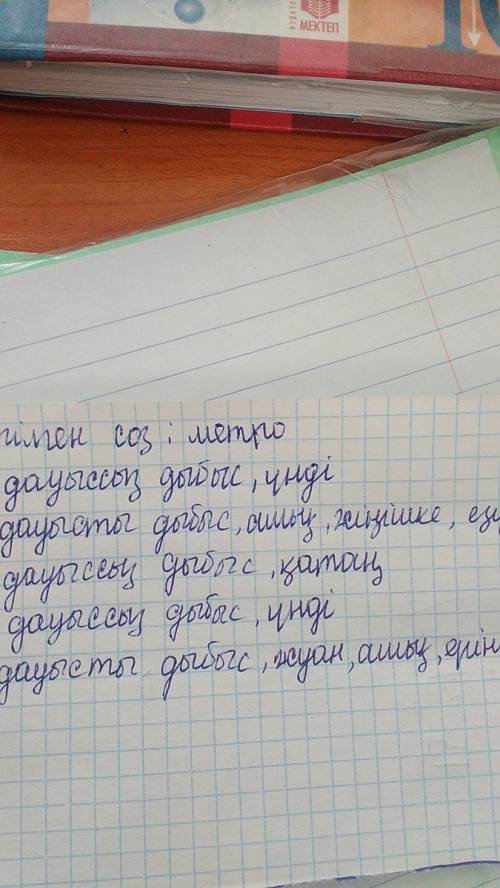 МЕКТЕП
сөз : метро
дауыссыз дыбыс, үнді
дауысты дыбыс, ашық, жіңішке, езу
дауыссыз дыбыс, қатаң
дауыссыз дыбыс, үнді
дауысты дыбыс, жуан, ашық, ерін